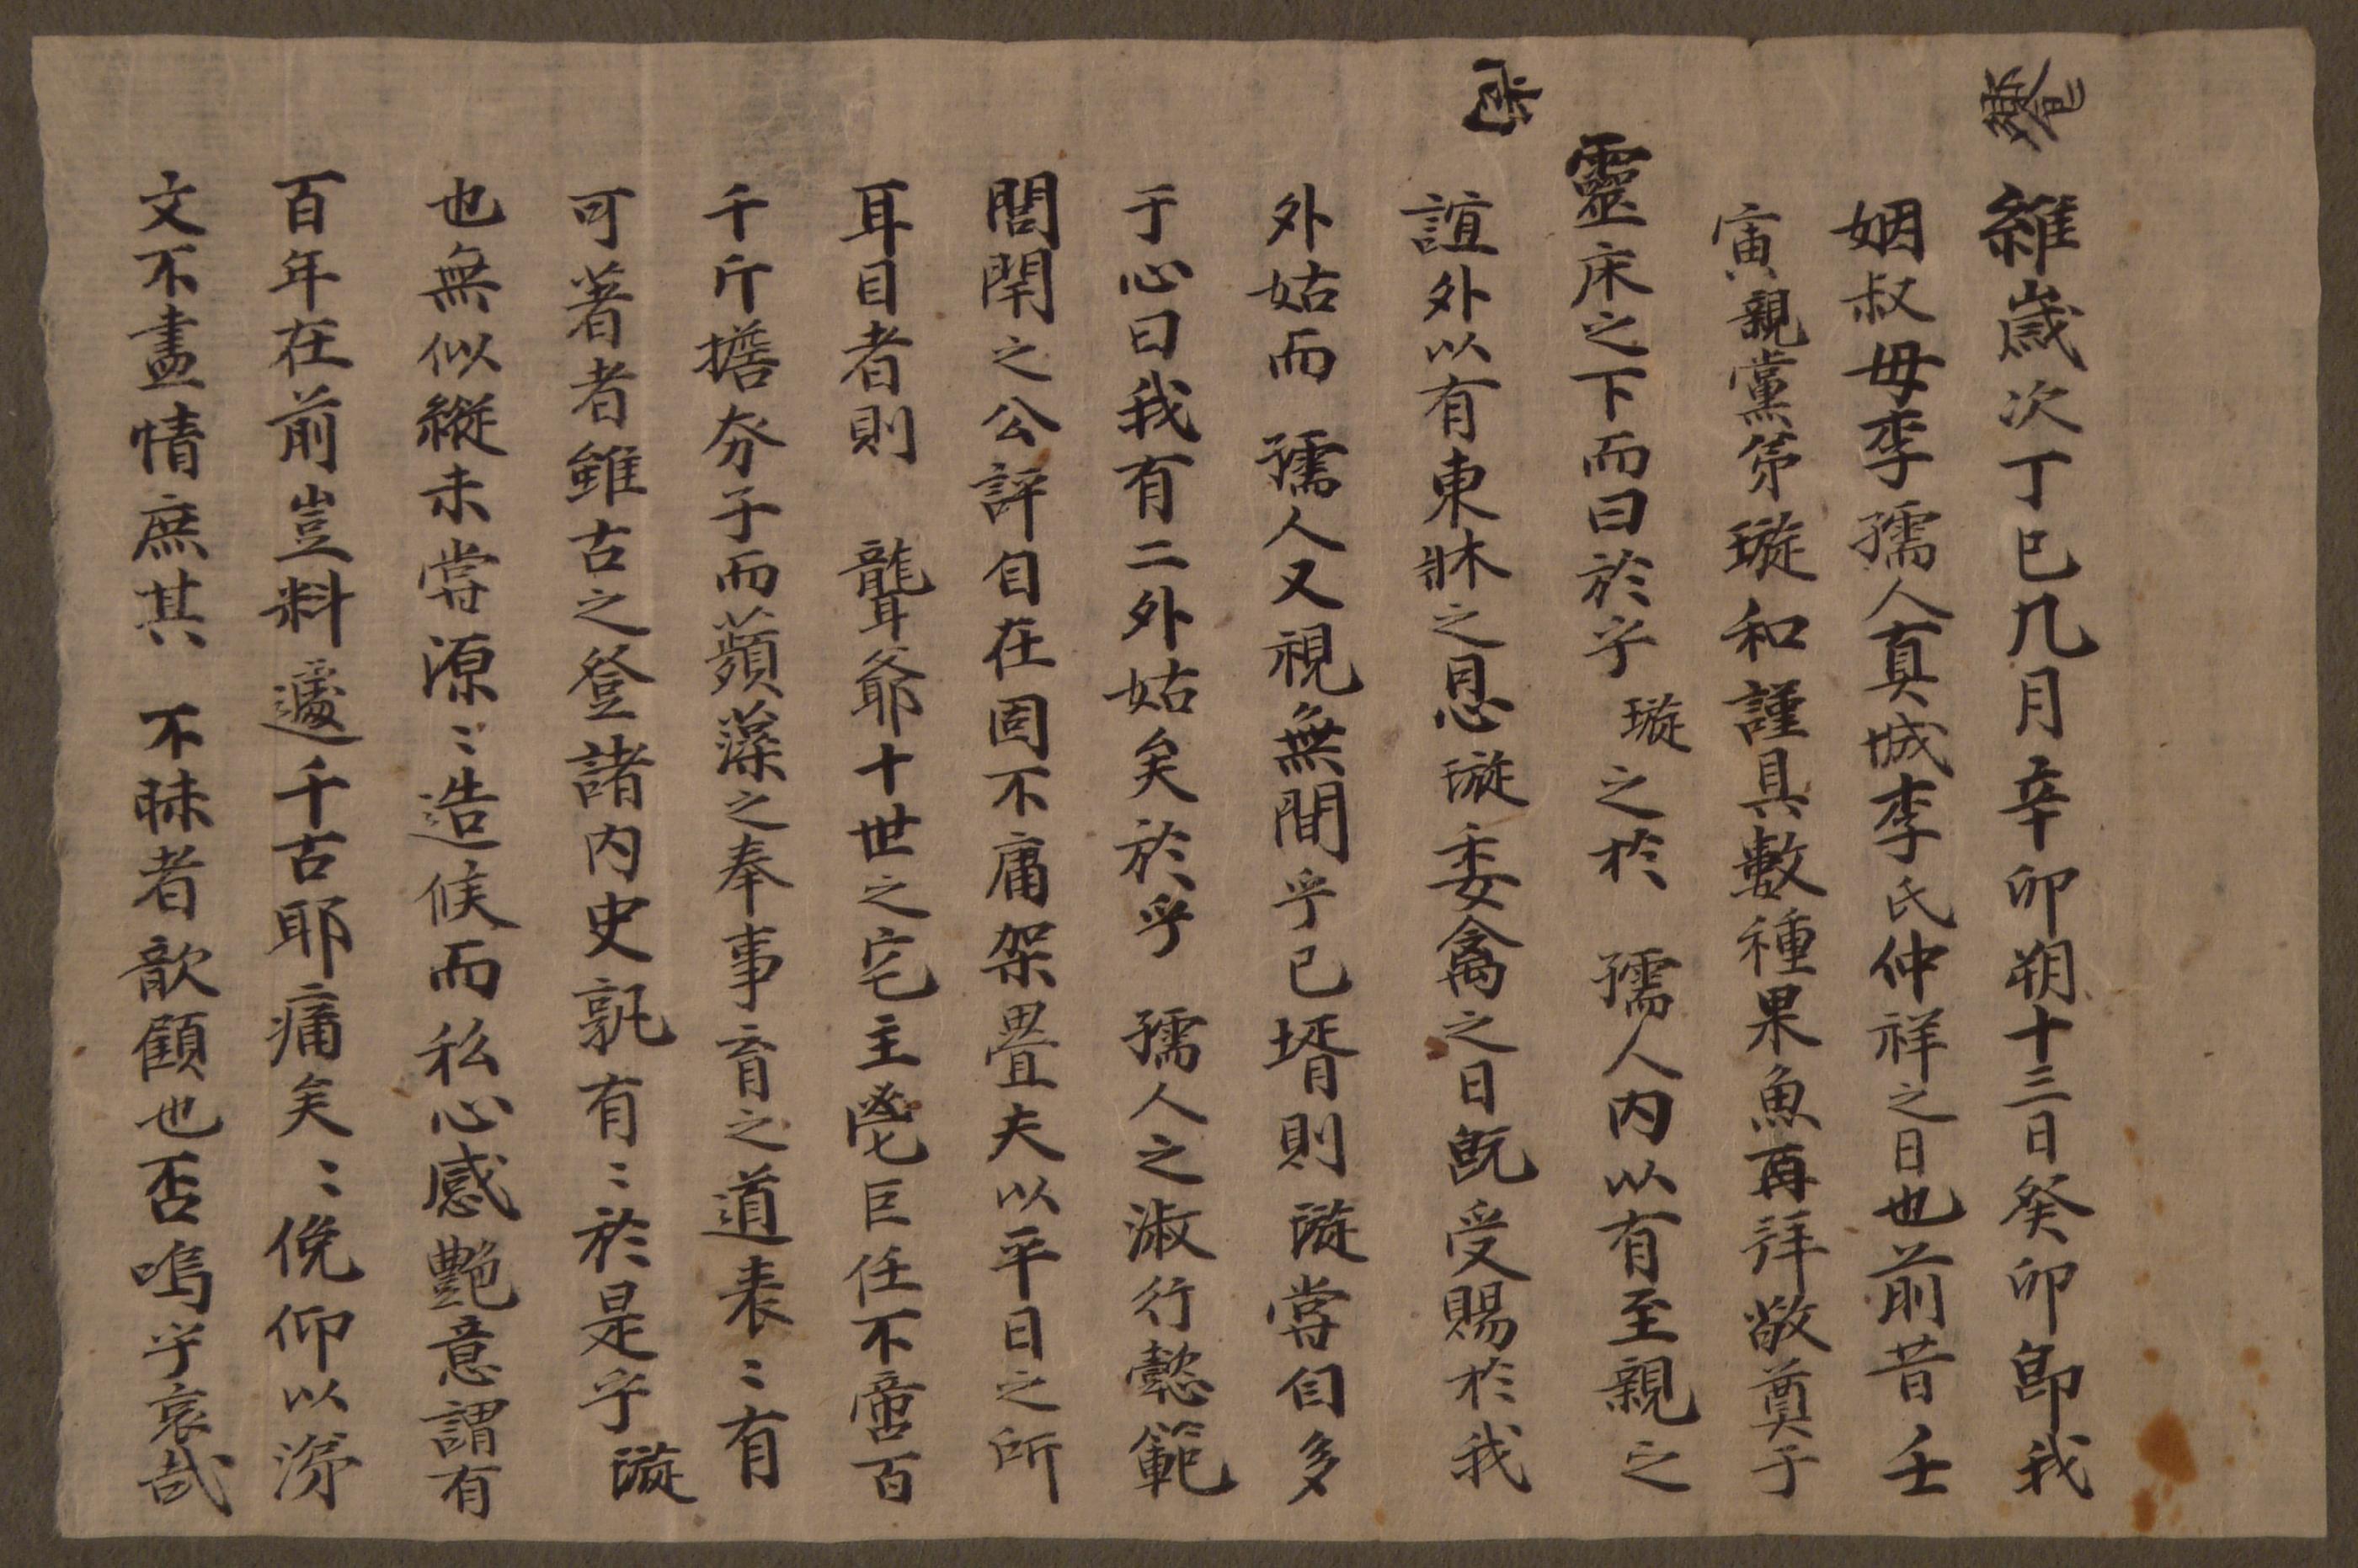 維歲次丁巳九月辛卯朔十三日癸卯即我
姻叔母李孺人真城李氏仲祥之日也前昔壬
寅親黨弟璇和謹具數種果魚再拜敬奠于
靈床之下而曰於乎璇之於 孺人內以有至親之
誼外以有東牀之恩璇委禽之日旣受賜於我
外姑而 孺人又視無間乎已壻則璇嘗自多
于心曰我有二外姑矣於乎 孺人之淑行懿範
閭閈之公評自在固不庸架疊夫以平日之所
耳目者則 聾爺十世之宅主鬯巨任不啻百
千斤擔夯子而蘋藻之奉事育之道表〻有
可著者雖古之登諸內史孰有〻於是乎璇
也無似縱未嘗源〻造候而私心感艷意謂有
百年在前豈料遽千古耶痛矣〻俛仰以涕
文不盡情庶其 不昧者歆顧也否嗚乎哀哉